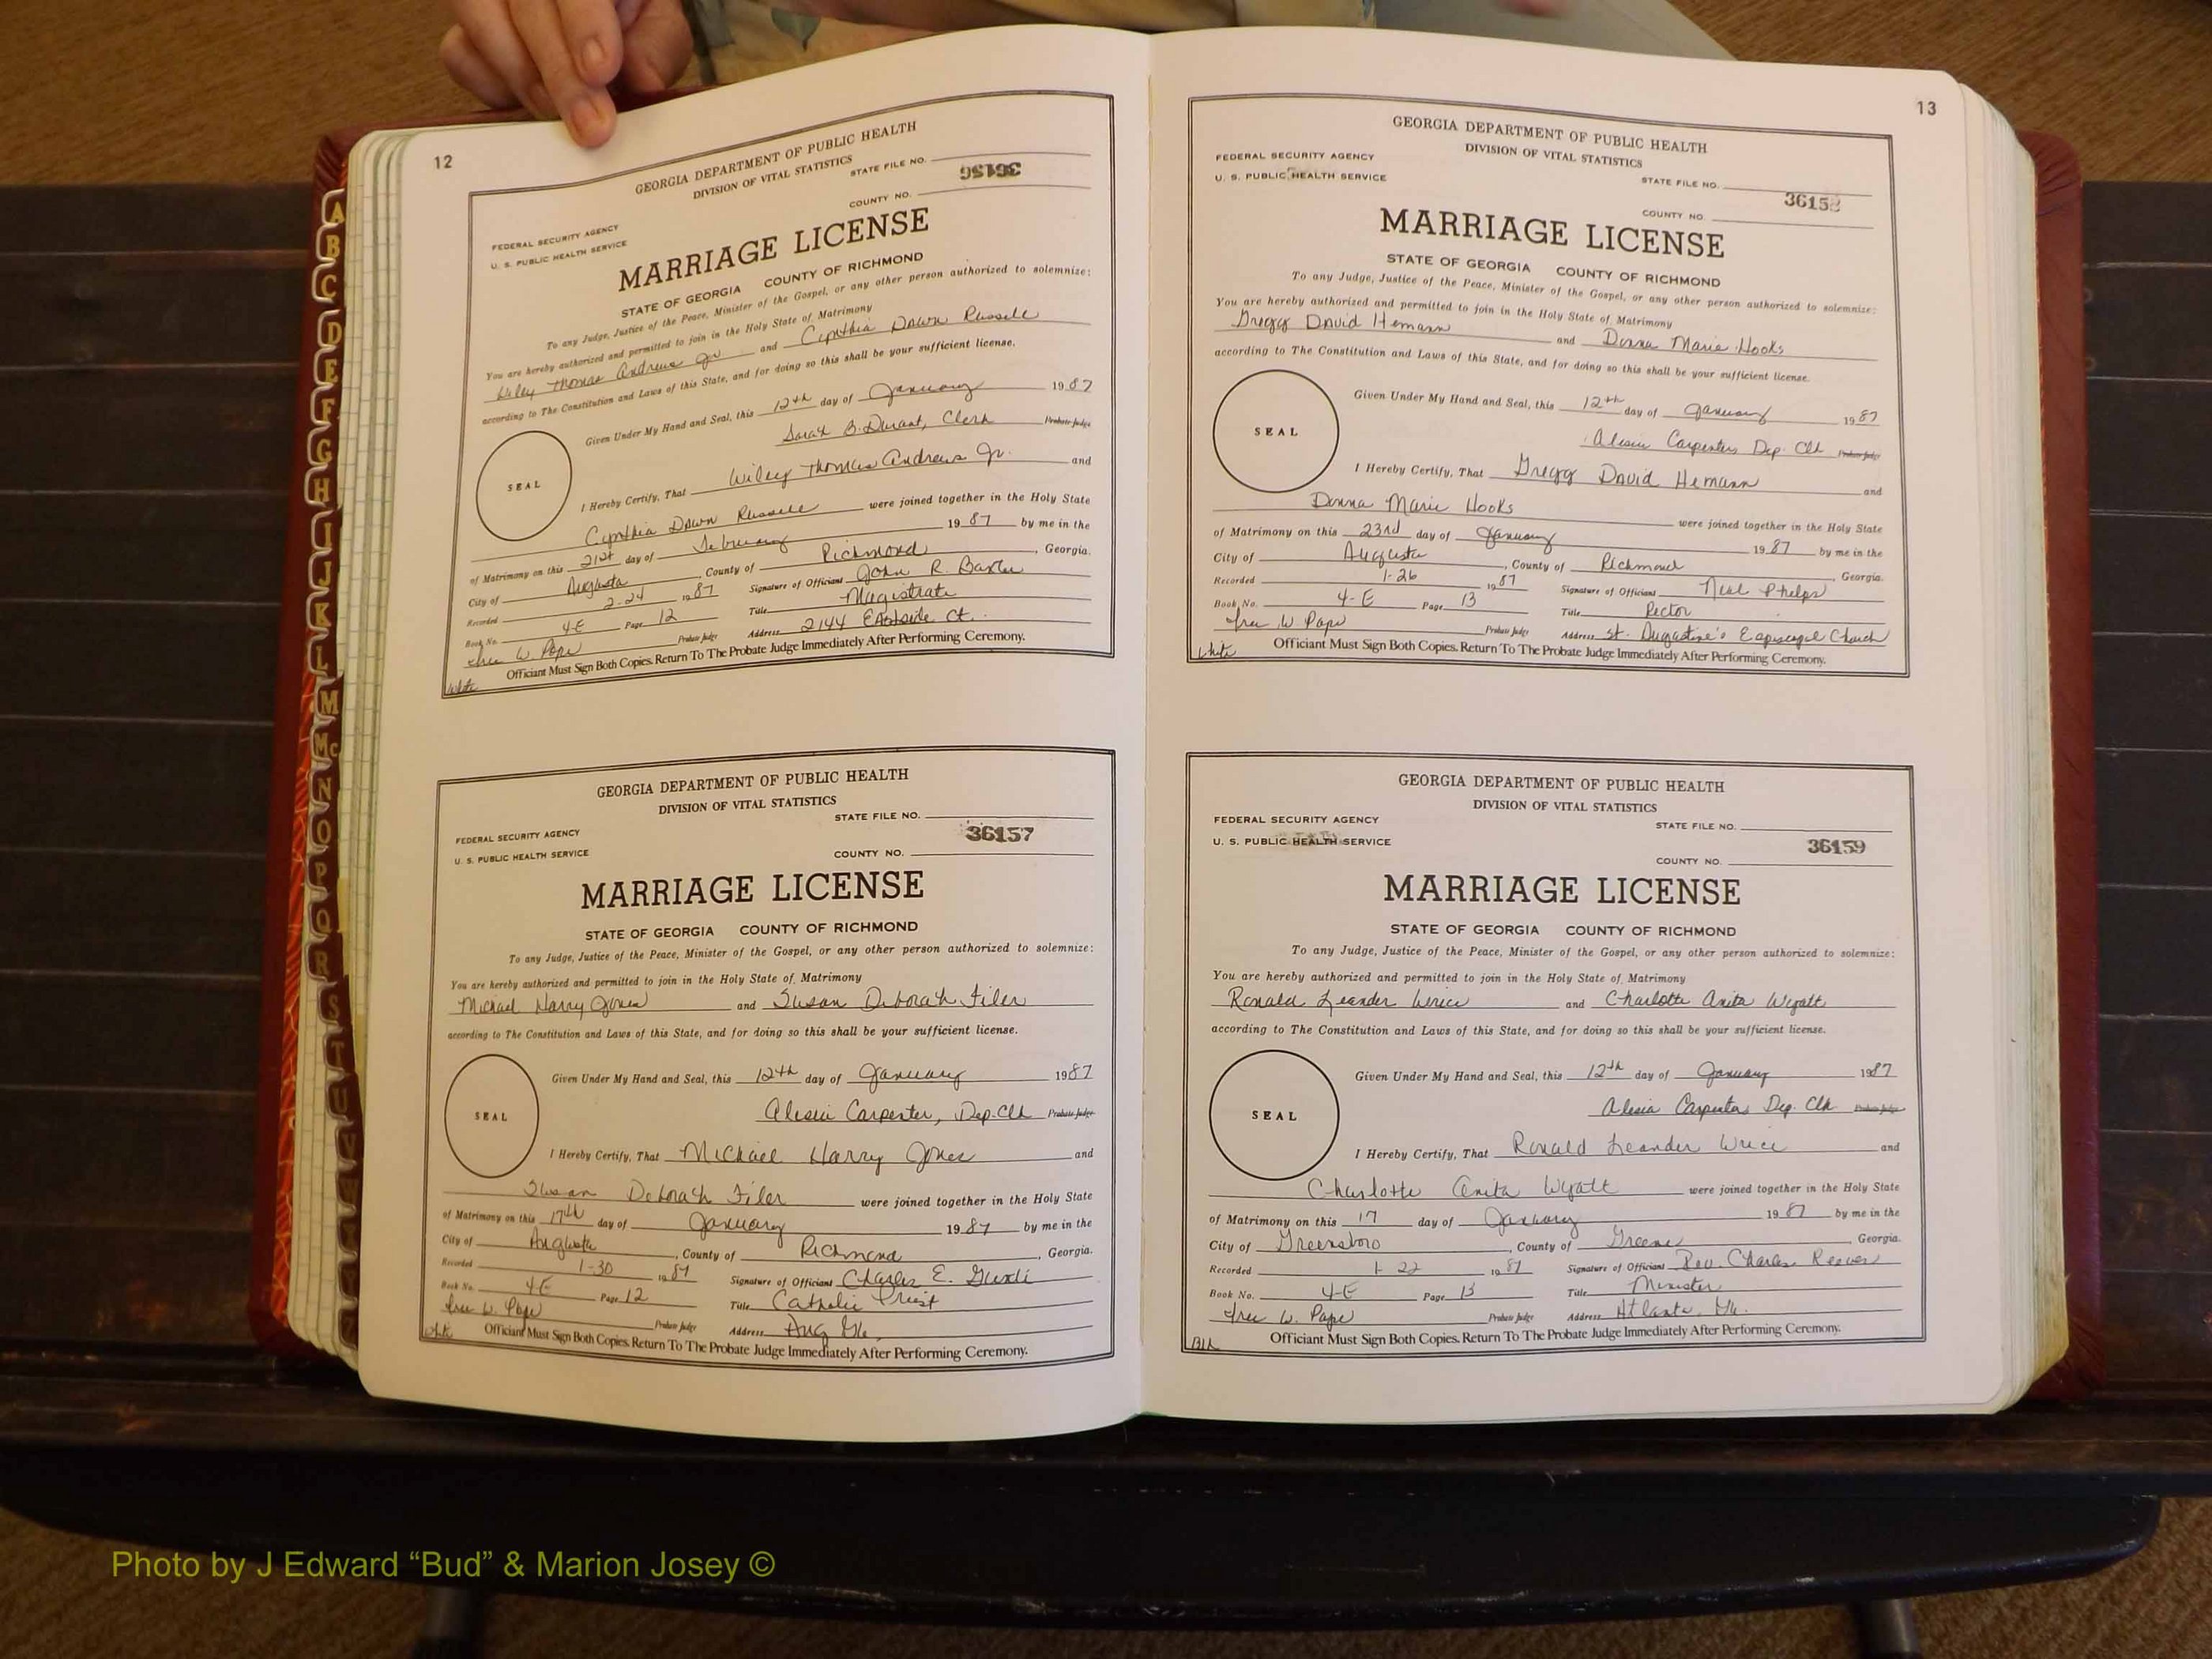 12
GEORGIA DEPARTMENT OF PUBLIC HEALTH
DIVISION OF VITAL STATISTICS
STATE FILE NO.
36156
COUNTY NO.
FEDERAL SECURITY AGENCY
U. S. PUBLIC HEALTH SERVICE
MARRIAGE LICENSE
STATE OF GEORGIA COUNTY OF RICHMOND
To any Judge, Justice of the Peace, Minister of the Gospel, or any other person authorized to solemnize:
You are hereby authorized and permitted to join in the Holy State of Matrimony
Wiley Thomas Andrews Jr and Cynthia Dawn Russell
according to The Constitution and Laws of this State, and for doing so this shall be your sufficient license.
Given Under My Hand and Seal, this 12th day of January 1987
Sarah B. Durant, Clerk Probate Judge
SEAL
I Hereby Certify, That Wiley Thomas Andrews Jr. and
Cynthia Dawn Russell were joined together in the Holy State
of Matrimony on this 21st day of February 1987 by me in the
City of Augusta, County of Richmond, Georgia.
Recorded 2-24 1987 Signature of Officiant John R. Baxter
Book No. 4-E Page 12 Title Magistrate
W. Pope Probate Judge Address 2144 Eastside Ct.
White Officiant Must Sign Both Copies. Return To The Probate Judge Immediately After Performing Ceremony.
GEORGIA DEPARTMENT OF PUBLIC HEALTH
DIVISION OF VITAL STATISTICS
STATE FILE NO.
FEDERAL SECURITY AGENCY
36157
U. S. PUBLIC HEALTH SERVICE
COUNTY NO.
MARRIAGE LICENSE
STATE OF GEORGIA COUNTY OF RICHMOND
To any Judge, Justice of the Peace, Minister of the Gospel, or any other person authorized to solemnize:
You are hereby authorized and permitted to join in the Holy State of Matrimony
Michael Harry Jones and Susan Deborah Filer
according to The Constitution and Laws of this State, and for doing so this shall be your sufficient license.
Given Under My Hand and Seal, this 12th day of January 1987
Alesia Carpenter, Dep. Clk Probate Judge
SEAL
I Hereby Certify, That Michael Harry Jones and
Susan Deborah Filer were joined together in the Holy State
of Matrimony on this 17th day of January 1987 by me in the
City of Augusta, County of Richmond, Georgia.
Recorded 1-30 1987 Signature of Officiant Charles E.
Book No. 4-E Page 12 Title Catholic Priest
W. Pope Probate Judge Address Aug Ga,
White Officiant Must Sign Both Copies. Return To The Probate Judge Immediately After Performing Ceremony.
13
GEORGIA DEPARTMENT OF PUBLIC HEALTH
DIVISION OF VITAL STATISTICS
FEDERAL SECURITY AGENCY
U. S. PUBLIC HEALTH SERVICE
STATE FILE NO.
36158
COUNTY NO.
MARRIAGE LICENSE
STATE OF GEORGIA COUNTY OF RICHMOND
To any Judge, Justice of the Peace, Minister of the Gospel, or any other person authorized to solemnize:
You are hereby authorized and permitted to join in the Holy State of Matrimony
Gregg David Hemann and Donna Marie Hooks
according to The Constitution and Laws of this State, and for doing so this shall be your sufficient license.
Given Under My Hand and Seal, this 12th day of January 1987
Alesia Carpenter Dep. Clk Probate Judge
SEAL
I Hereby Certify, That Gregg David Hemann and
Donna Marie Hooks were joined together in the Holy State
of Matrimony on this 23rd day of January 1987 by me in the
City of Augusta, County of Richmond, Georgia.
Recorded 1-26 1987 Signature of Officiant Neal Phelps
Book No. 4-E Page 13 Title Rector
W Pope Probate Judge Address St. Augustine's Episcopal Church
White Officiant Must Sign Both Copies. Return To The Probate Judge Immediately After Performing Ceremony.
GEORGIA DEPARTMENT OF PUBLIC HEALTH
DIVISION OF VITAL STATISTICS
FEDERAL SECURITY AGENCY
STATE FILE NO.
U. S. PUBLIC HEALTH SERVICE
36159
COUNTY NO.
MARRIAGE LICENSE
STATE OF GEORGIA COUNTY OF RICHMOND
To any Judge, Justice of the Peace, Minister of the Gospel, or any other person authorized to solemnize:
You are hereby authorized and permitted to join in the Holy State of Matrimony
Ronald Leander Wrice and Charlotte Anita Wyatt
according to The Constitution and Laws of this State, and for doing so this shall be your sufficient license.
Given Under My Hand and Seal, this 12th day of January 1987
Alesia Carpenter Dep. Clk Probate Judge
SEAL
I Hereby Certify, That Ronald Leander Wrice and
Charlotte Anita Wyatt were joined together in the Holy State
of Matrimony on this 17 day of January 1987 by me in the
City of Greensboro, County of Greene, Georgia.
Recorded 1-22 1987 Signature of Officiant Rev. Charles Reeves
Book No. 4-E Page 13 Title Minister
W. Pope Probate Judge Address Atlanta, Ga.
Blk Officiant Must Sign Both Copies. Return To The Probate Judge Immediately After Performing Ceremony.
A
B
C
D
E
F
G
H
I
J
K
L
M
Mc
N
O
P
Q
R
S
T
U
Photo by J Edward “Bud” & Marion Josey ©